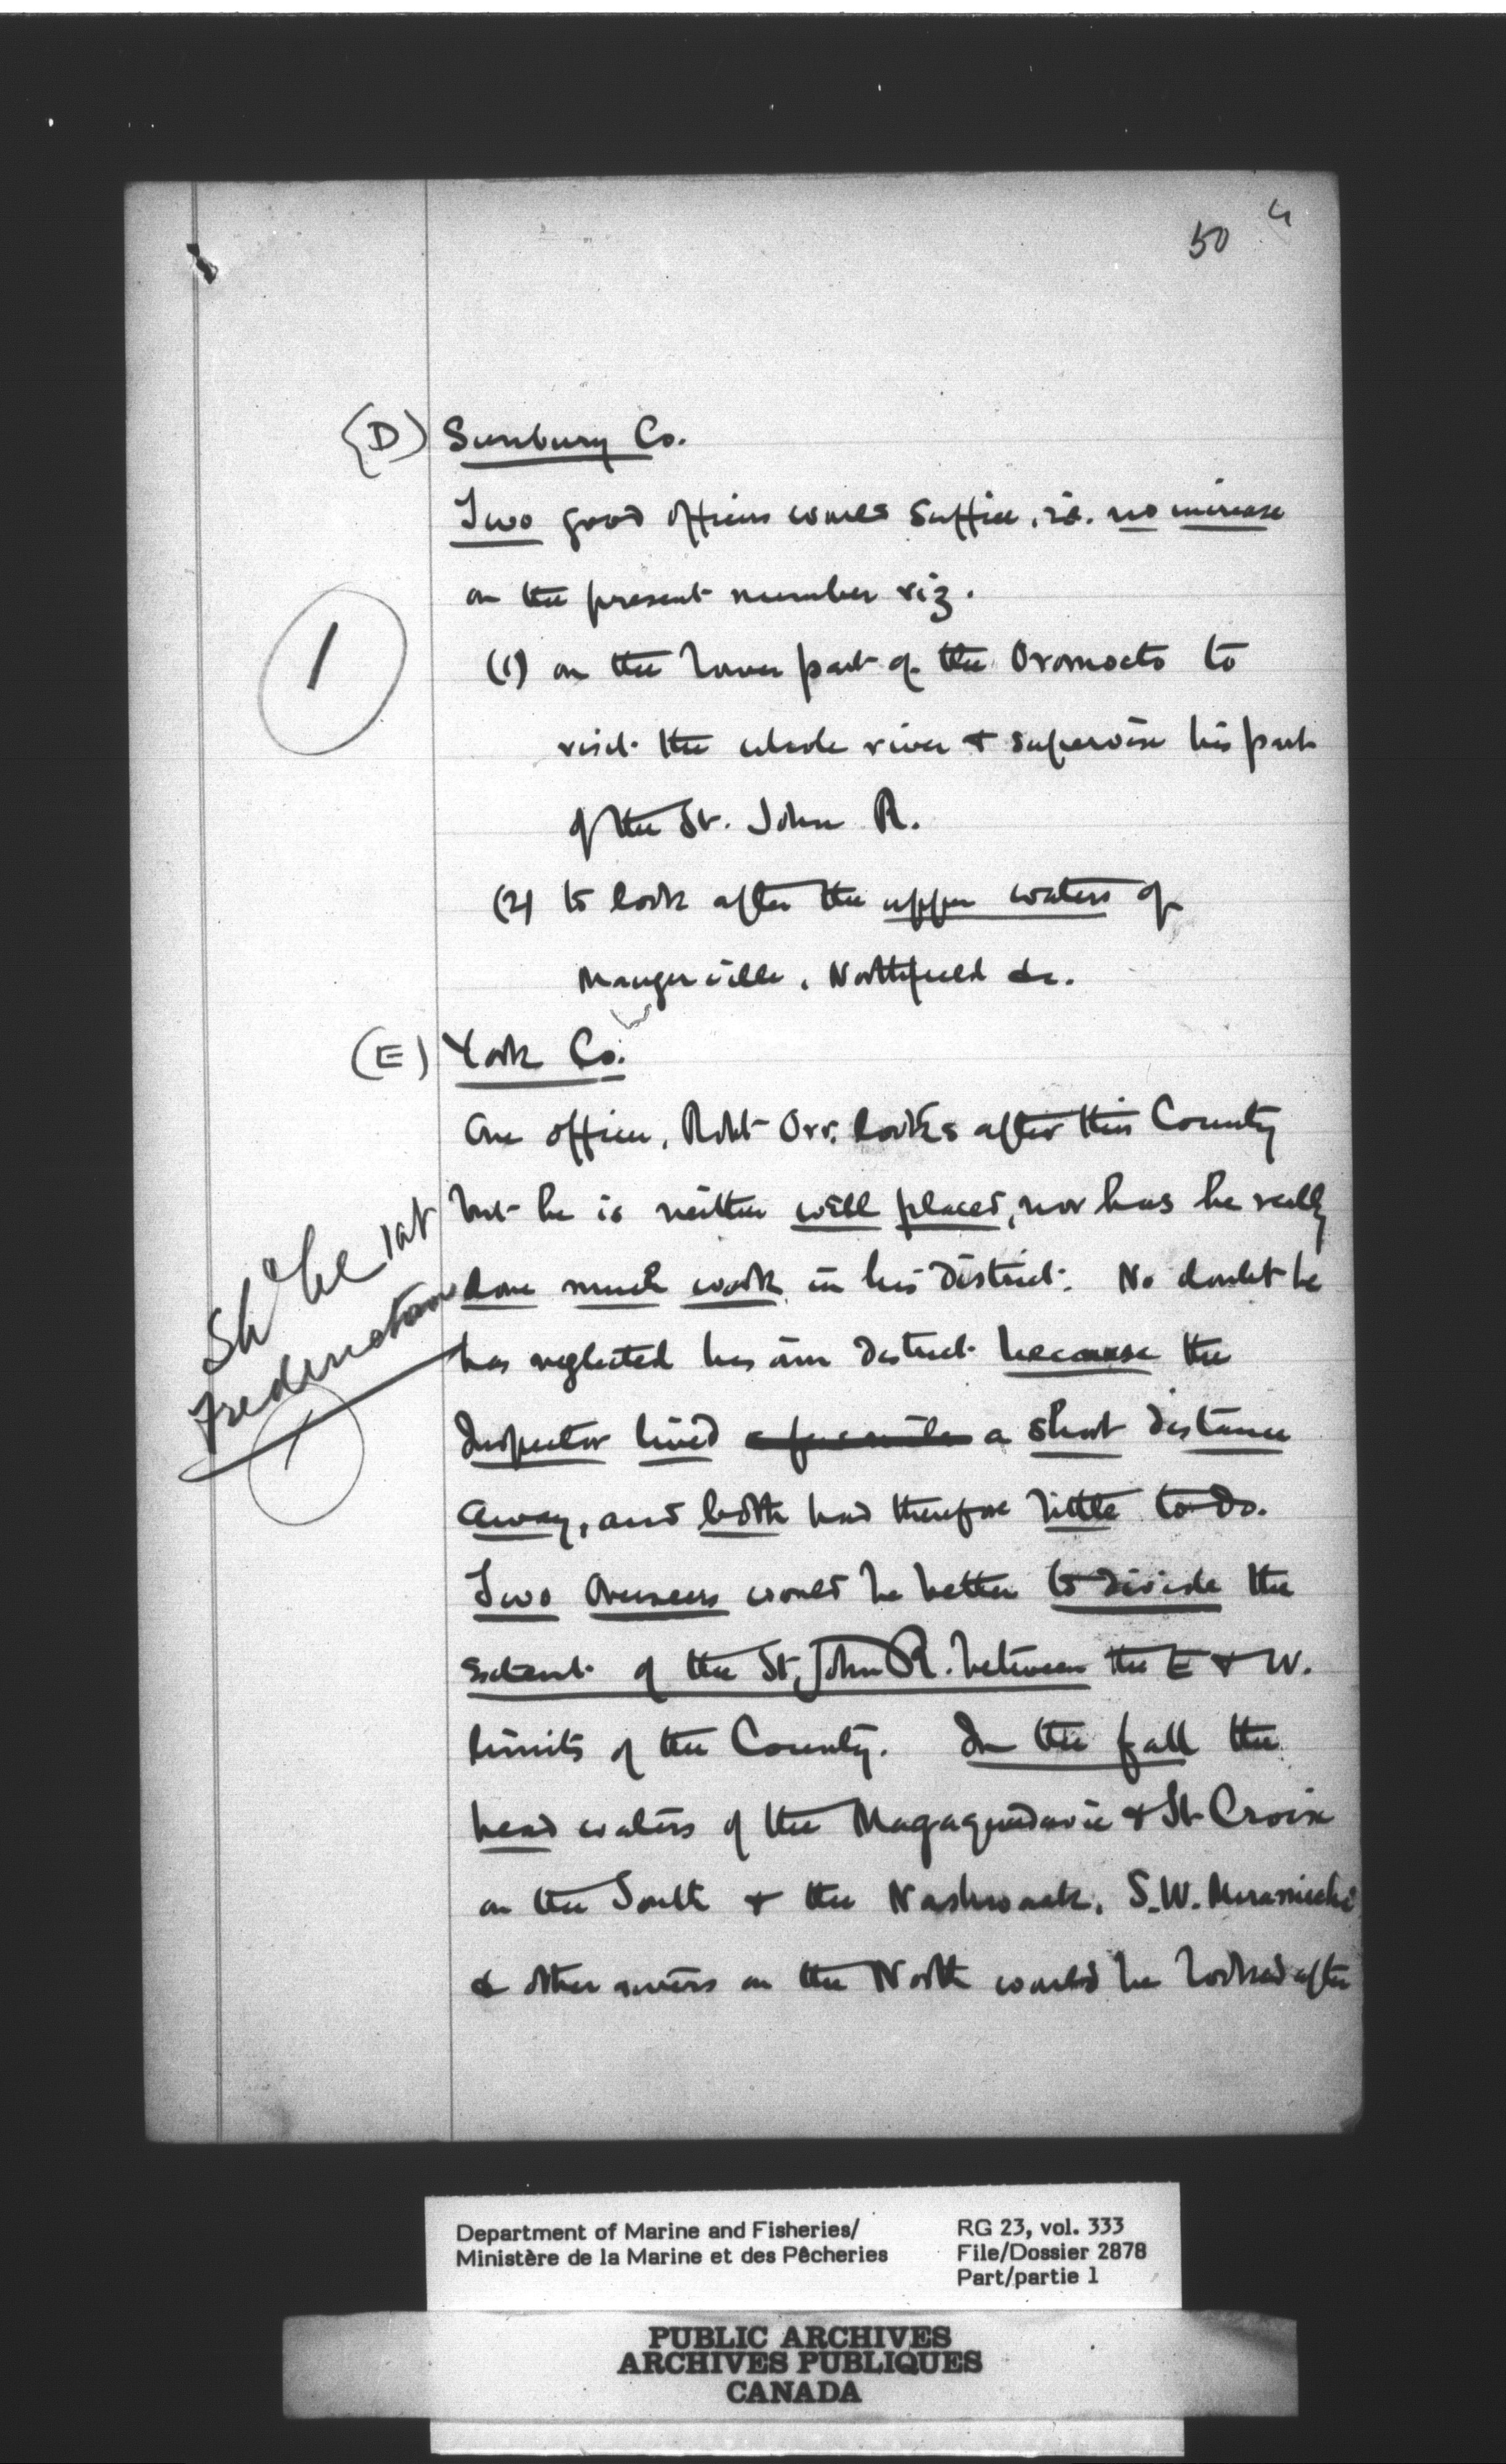 50
(D) Sunbury Co.
Two good officers would suffice, i.e. no increase
on the present number viz.
1
(1) on the lower part of the Oromocto to
visit the whole river & supervise his part
of the St. John R.
(2) to look after the upper waters of
Maugerville, Northfield &c.
(E) York Co.
One officer, Robt Orr, looks after this County
but he is neither well placed, nor has he really
done much work in his district. No doubt he
has neglected his own district because the
Inspector lived a few miles a short distance
away, and both had therefore little to do.
Shd be 1 at
Fredericton
1
Two Overseers would be better to divide the
extent of the St. John R. between the E & W.
limits of the County. In the fall the
head waters of the Magaguadavic & St Croix
on the South & the Nashwaak, S.W. Miramichi
& other rivers on the North would be looked after
Department of Marine and Fisheries/
Ministère de la Marine et des Pêcheries
RG 23, vol. 333
File/Dossier 2878
Part/partie 1
PUBLIC ARCHIVES
ARCHIVES PUBLIQUES
CANADA